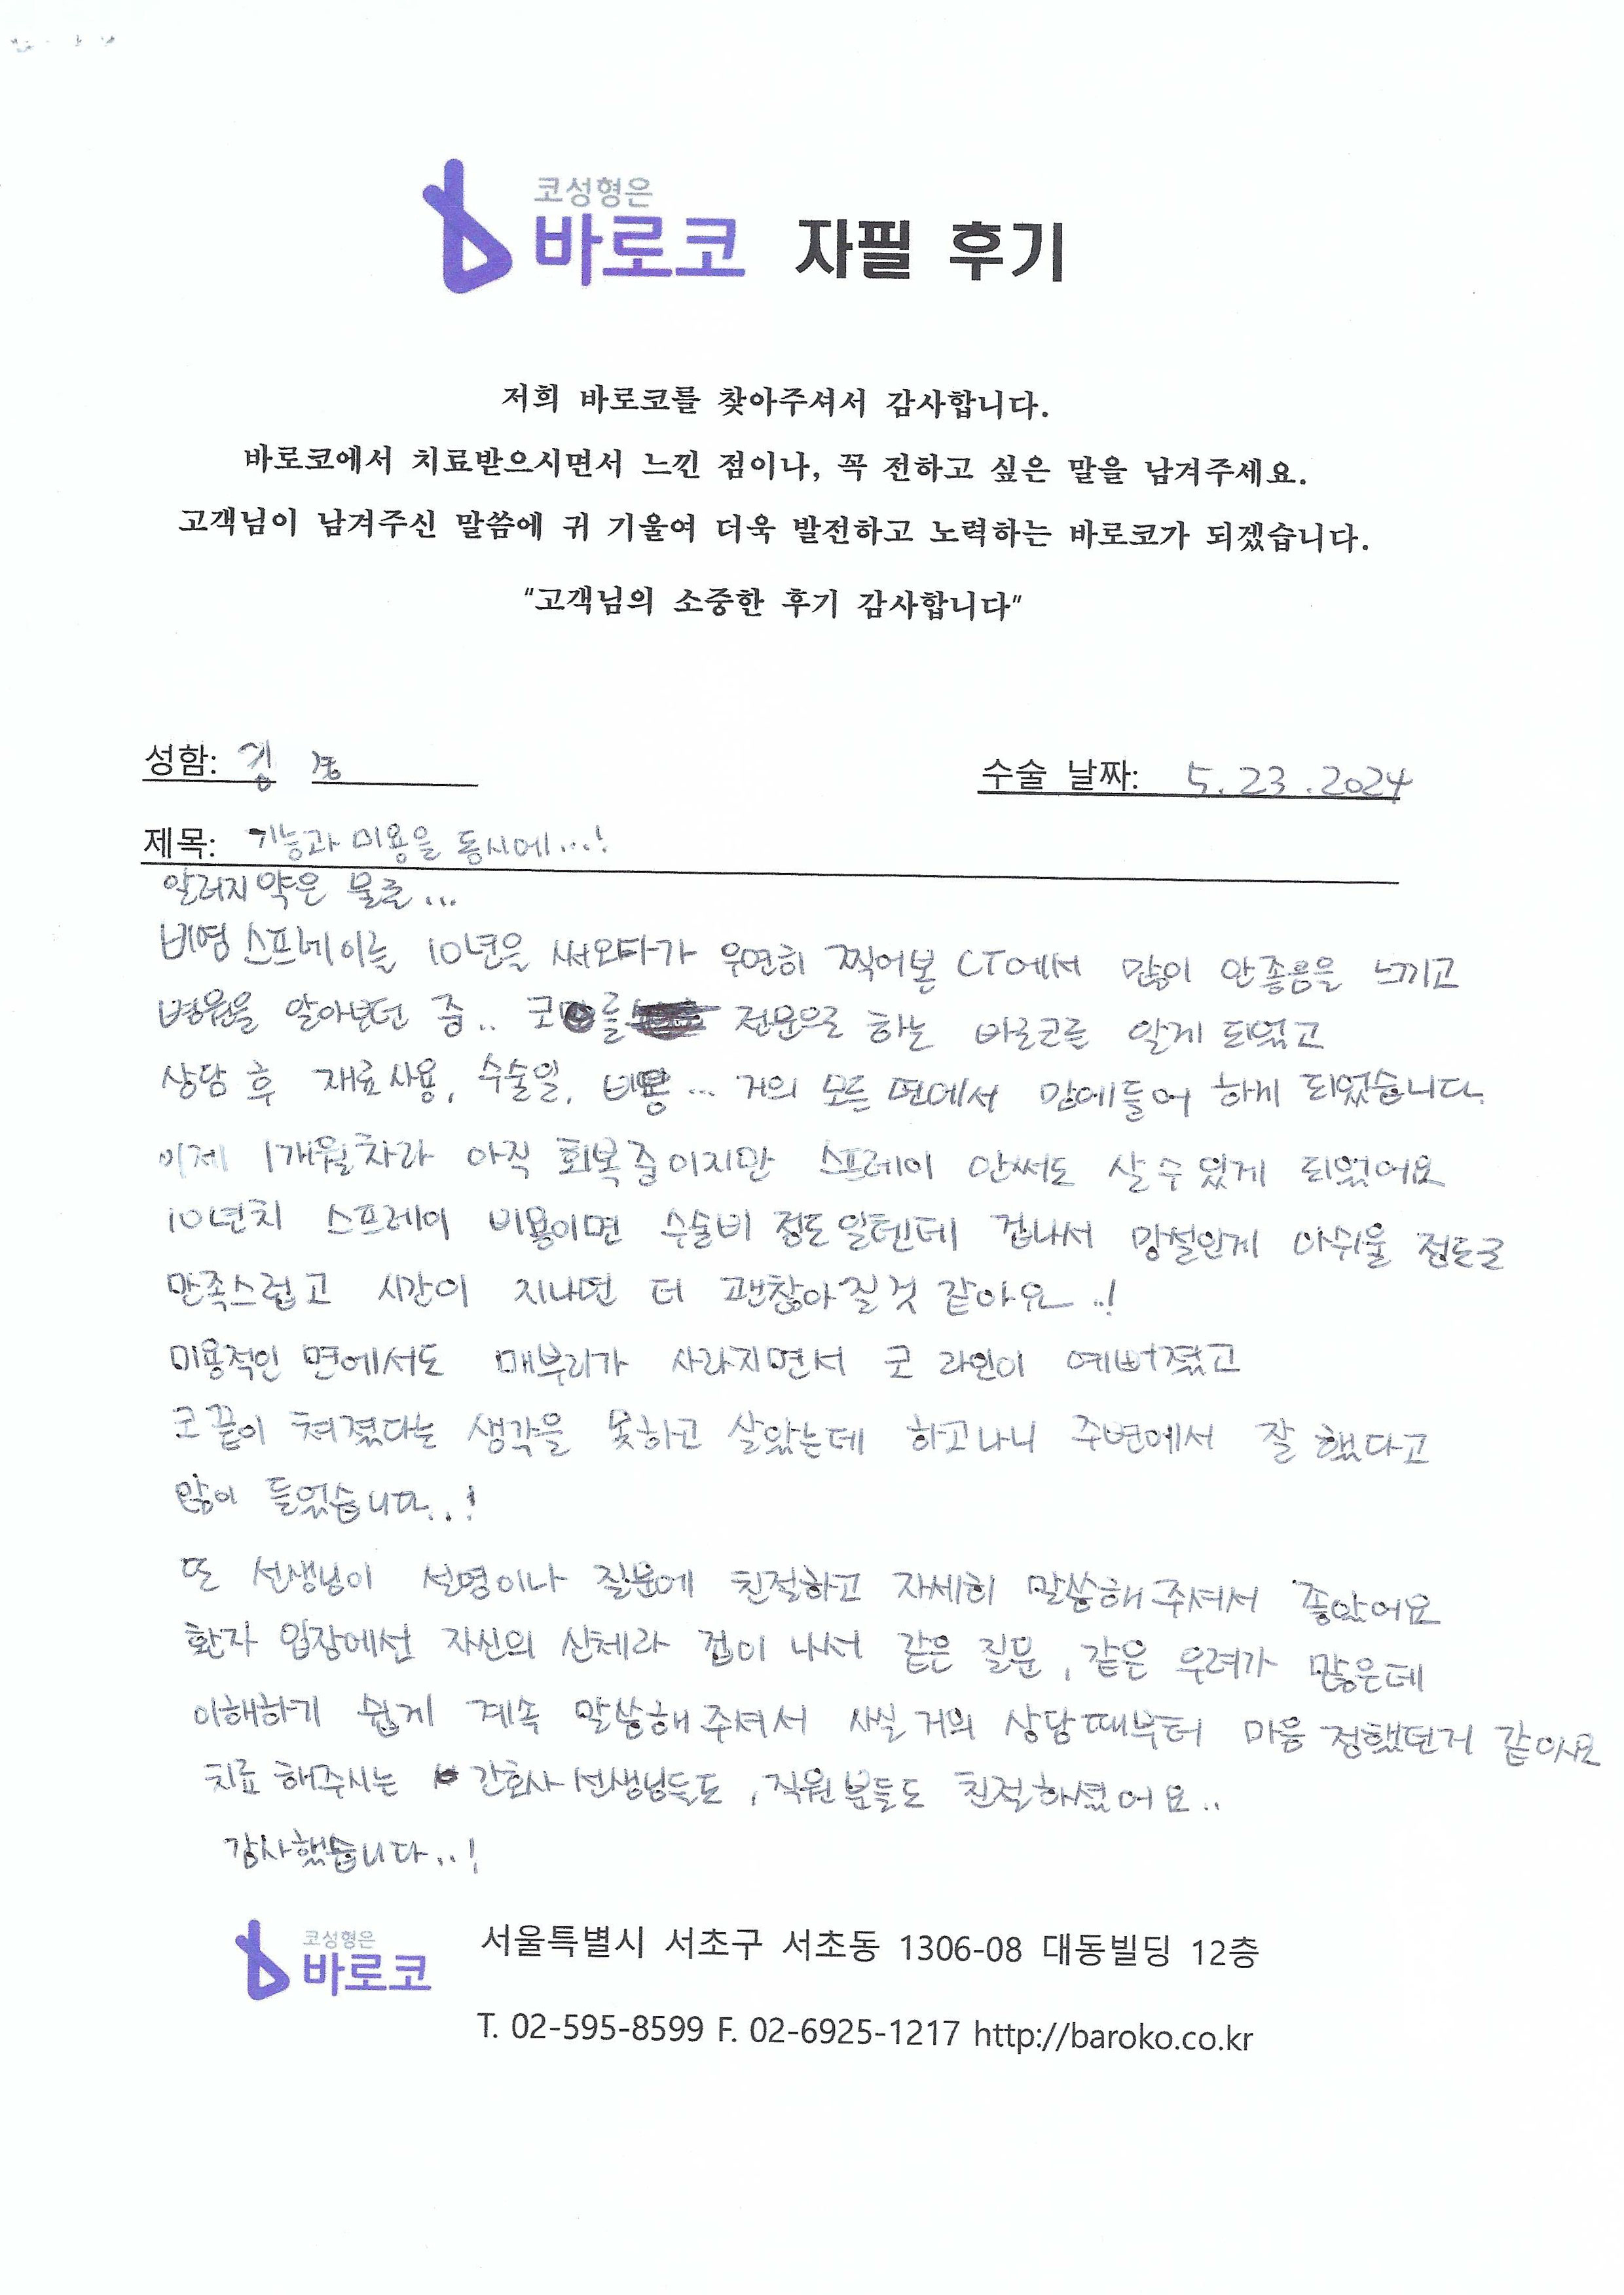 코성형은
바로코 자필 후기
저희 바로코를 찾아주셔서 감사합니다.
바로코에서 치료받으시면서 느낀 점이나, 꼭 전하고 싶은 말을 남겨주세요.
고객님이 남겨주신 말씀에 귀 기울여 더욱 발전하고 노력하는 바로코가 되겠습니다.
"고객님의 소중한 후기 감사합니다"
성함: 김
수술 날짜: 5.23.2024
제목: 기능과 미용을 동시에...!
알러지약은 물론...
비염 스프레이를 10년을 써오다가 우연히 찍어본 CT에서 많이 안좋음을 느끼고
병원을 알아보던 중.. 코를 전문으로 하는 바로코를 알게 되었고
상담 후 재료사용, 수술일, 비용... 거의 모든 면에서 맘에들어 하게 되었습니다.
이제 1개월차라 아직 회복중이지만 스프레이 안써도 살수있게 되었어요
10년치 스프레이 비용이면 수술비 정도일텐데 겁나서 망설인게 아쉬울 정도로
만족스럽고 시간이 지나면 더 괜찮아질것 같아요..!
미용적인 면에서도 매부리가 사라지면서 코 라인이 예뻐졌고
코끝이 쳐졌다는 생각을 못하고 살았는데 하고나니 주변에서 잘 했다고
많이 들었습니다..!
또 선생님이 설명이나 질문에 친절하고 자세히 말씀해주셔서 좋았어요
환자 입장에선 자신의 신체라 겁이 나서 같은 질문, 같은 우려가 많은데
이해하기 쉽게 계속 말씀해주셔서 사실 거의 상담때부터 마음 정했던거 같아요
치료 해주시는 간호사선생님들도, 직원분들도 친절하셨어요..
감사했습니다..!
코성형은
바로코
서울특별시 서초구 서초동 1306-08 대동빌딩 12층
T. 02-595-8599 F. 02-6925-1217 http://baroko.co.kr